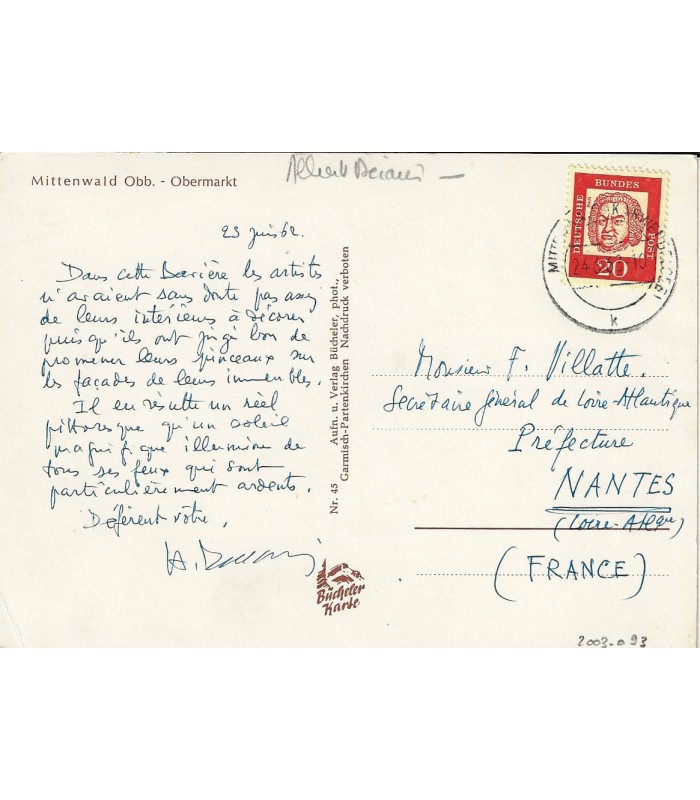 Mittenwald Obb. - Obermarkt
Albert
23 juin 62.
Dans cette Bavière les artistes
n'avaient sans doute pas assez
de leurs intérieurs à décorer
puisqu'ils ont jugé bon de
promener leurs pinceaux sur
les façades de leurs immeubles.
Il en résulte un réel
pittoresque qu'un soleil
magnifique illumine de
tous ses feux qui sont
particulièrement ardents.
Déférent vôtre,
Nr. 45 Aufn. u. Verlag Bücheler, phot.
Garmisch-Partenkirchen Nachdruck verboten
Bücheler
Karte
DEUTSCHE
BUNDES
POST
20
MITTENWALD
k
Monsieur F. Villatte.
Secrétaire Général de Loire-Atlantique
Préfecture
NANTES
(Loire-Atlque)
(FRANCE)
2003-093